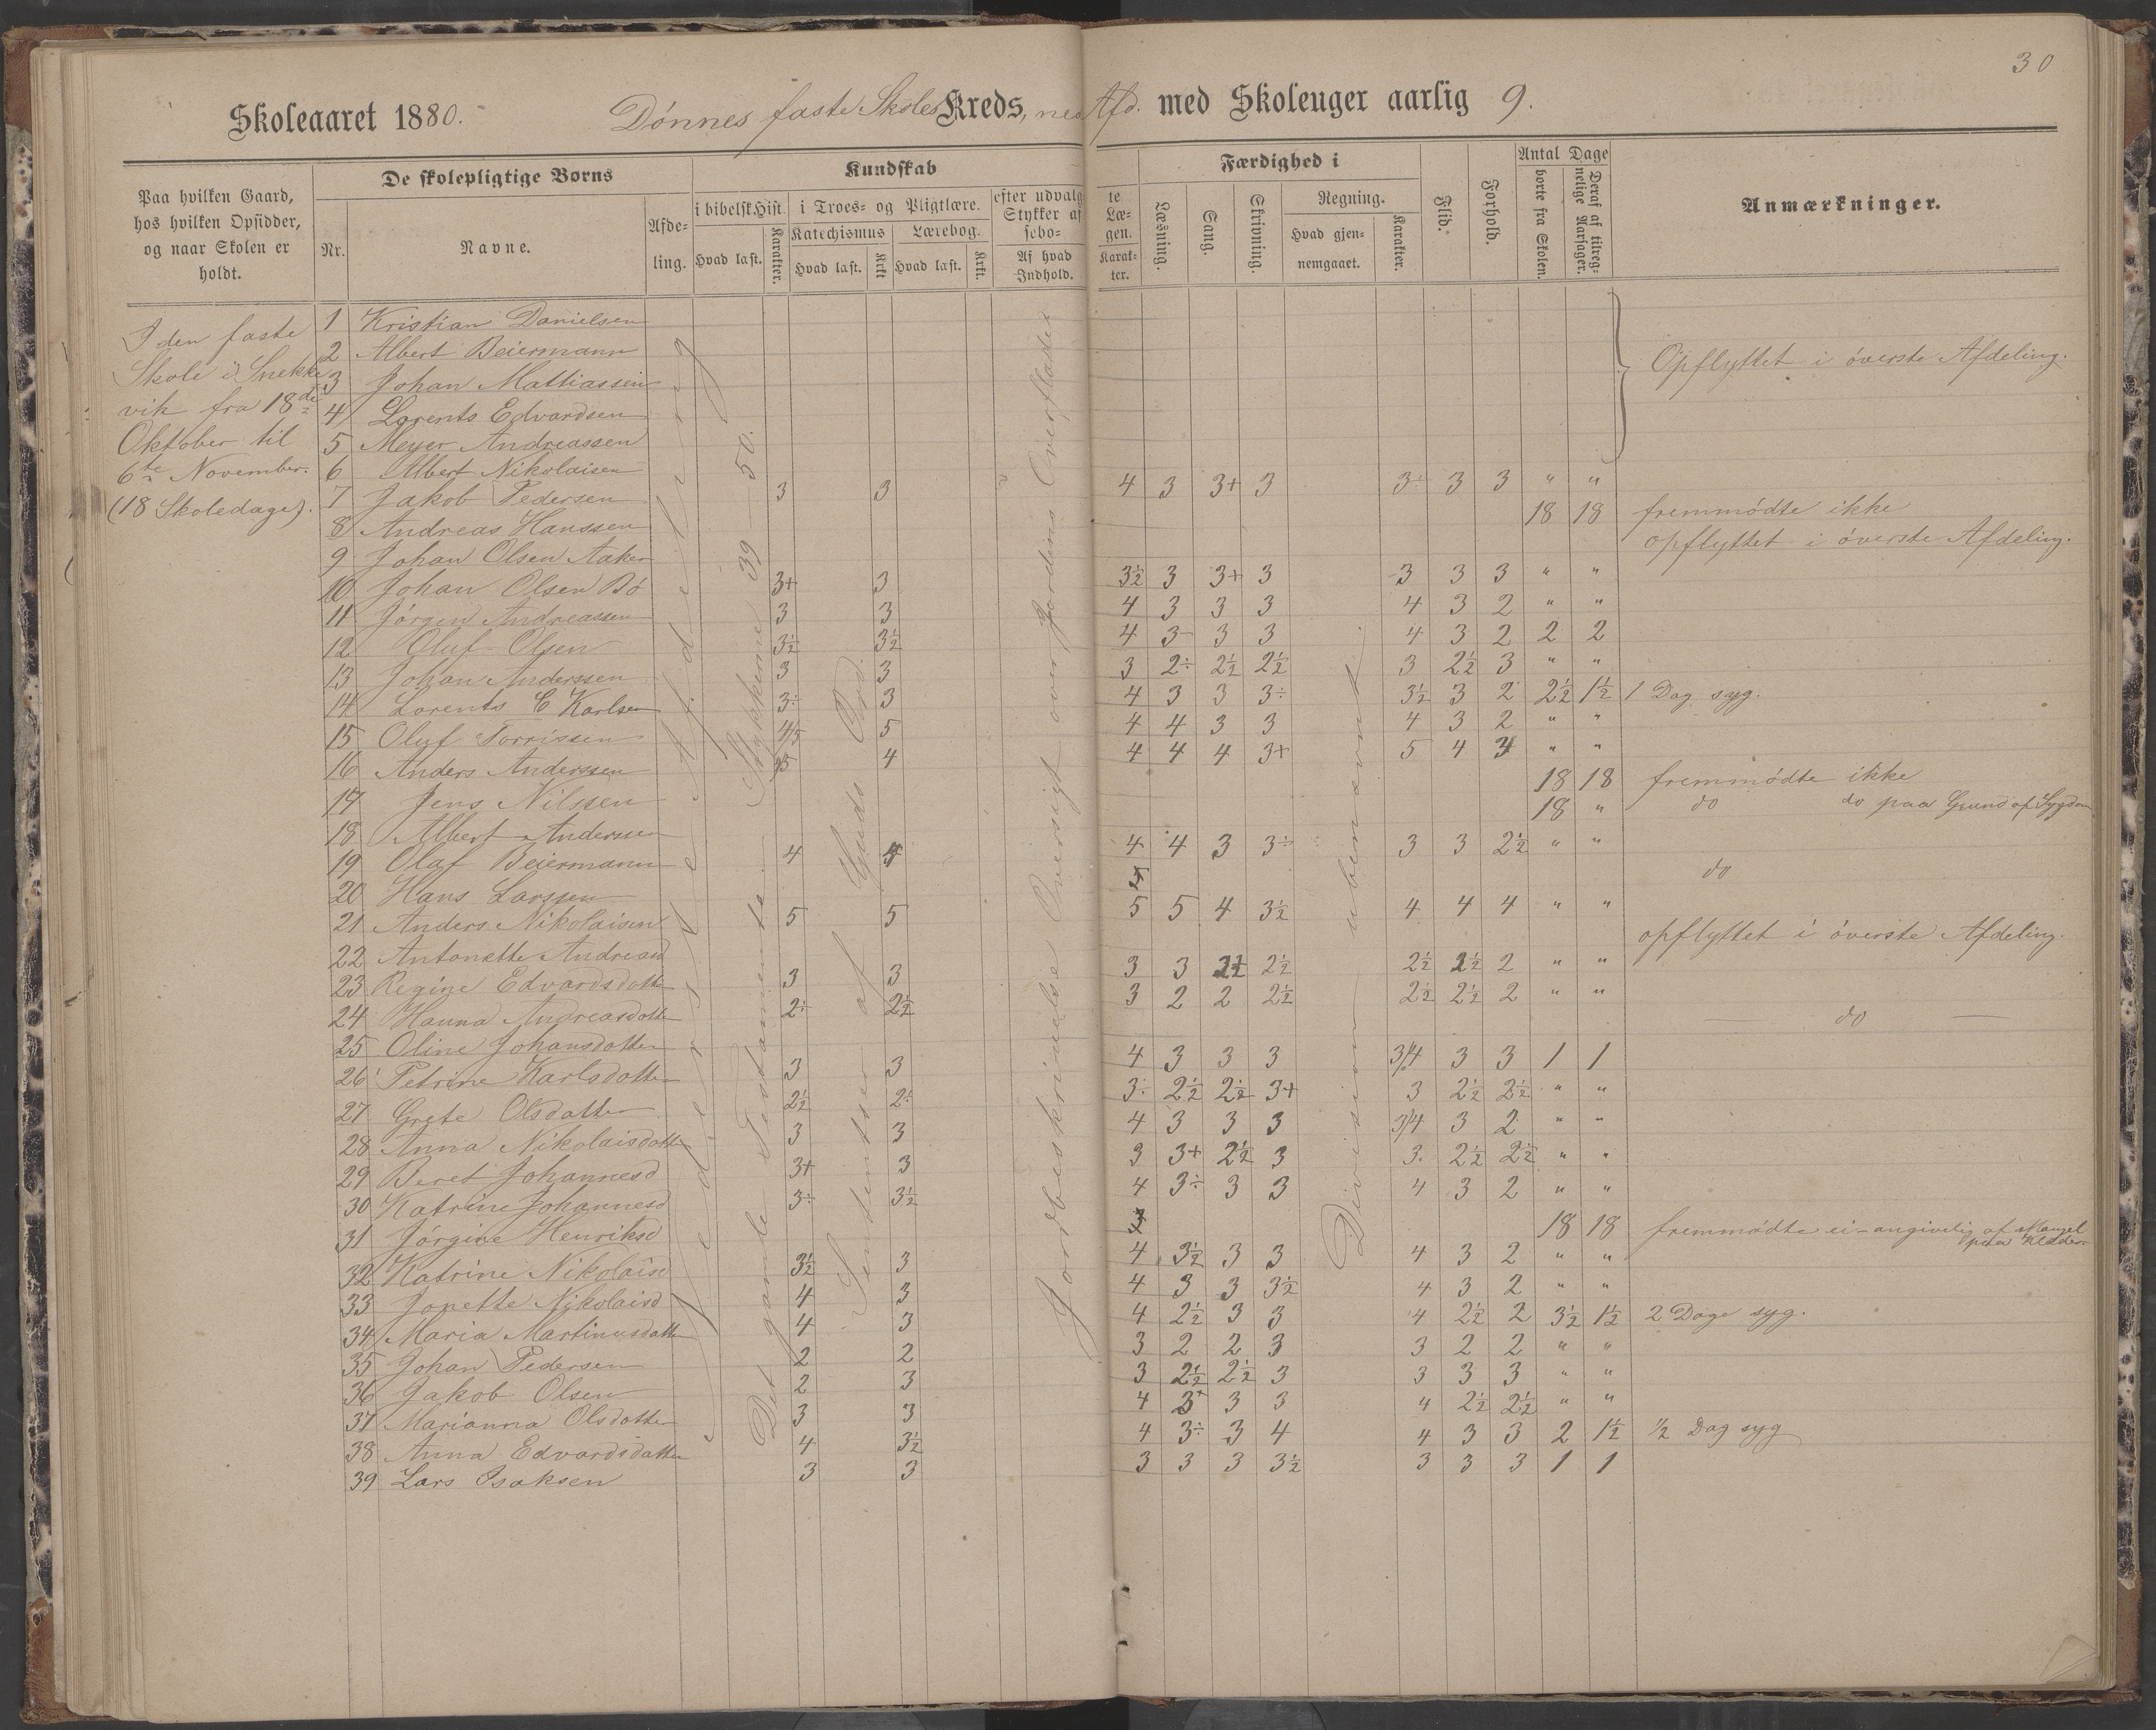 30
Skoleaaret 1880. Dønnes faste Skoles Kreds, ned Afd. med Skoleuger aarlig 9.
Paa hvilken Gaard, hos hvilken Opsidder, og naar Skolen er holdt.
De skolepligtige Børns
Nr. Navne. Afdeling.
Kundskab
i bibelsk Hist. Hvad læst. Karakter.
i Troes- og Pligtlære.
Katechismus Hvad læst. Krkt
Lærebog. Hvad læst. Krkt.
efter udvalgte Stykker af Læsebogen.
Af hvad Indhold. Karakter.
Færdighed i
Læsning. Sang. Skrivning.
Regning. Hvad gjennemgaaet. Karakter.
Flid. Forhold.
Antal Dage borte fra Skolen. Deraf af tilregnelige Aarsager.
Anmærkninger.
I den faste
Skole i Snekke
vik fra 18de
Oktober til
6te November.
(18 Skoledage).
Nederste Afdeling
Det gamle Testamente. Stykkerne 39 - 50.
Sententser af Guds Ord.
Jordbeskrivelse Oversigt over Jordens Overflade
Division - ubenævnt
1 Kristian Danielsen
2 Albert Beiermann
3 Johan Mattiassen
4 Lorents Edvardsen
5 Meyer Andreassen
Opflyttet i øverste Afdeling.
6 Albert Nikolaisen
7 Jakob Pedersen 3 3 4 3 3+ 3 3÷ 3 3 " "
8 Andreas Hanssen 18 18 fremmødte ikke
9 Johan Olsen Aaker opflyttet i øverste Afdeling.
10 Johan Olsen Bø 3+ 3 3½ 3 3+ 3 3 3 3 " "
11 Jørgen Andreassen 3 3 4 3 3 3 4 3 2 " "
12 Oluf Olsen 3½ 3½ 4 3 3 3 4 3 2 2 2
13 Johan Anderssen 3 3 3 2÷ 2½ 2½ 3 2½ 3 " "
14 Lorents C Karlsen 3÷ 3 4 3 3 3÷ 3½ 3 2 2½ 1½ 1 Dag syg.
15 Oluf Torrissen 4/5 5 4 4 3 3 4 3 2 " "
16 Anders Anderssen 5 4 4 4 4 3+ 5 4 3 " "
17 Jens Nilssen 18 18 fremmødte ikke
18 Albert Anderssen 18 " do do paa Grund af Sygdom
19 Olaf Beiermann 4 4 4 4 3 3÷ 3 3 2½ " "
20 Hans Larssen do
21 Anders Nikolaisen 5 5 5 5 4 3½ 4 4 4 " "
22 Antonette Andreasd opflyttet i øverste Afdeling.
23 Regine Edvardsdotter 3 3 3 3 2½ 2½ 2½ 2½ 2 " "
24 Hanna Andreasdotter 2÷ 2½ 3 2 2 2½ 2½ 2½ 2 " "
25 Oline Johansdotter — do —
26 Petrine Karlsdotter 3 3 4 3 3 3 3/4 3 3 1 1
27 Grete Olsdatter 2½ 2÷ 3÷ 2½ 2½ 3+ 3 2½ 2½ " "
28 Anna Nikolaisdotter 3 3 4 3 3 3 3/4 3 2 " "
29 Beret Johannesd 3+ 3 3 3+ 2½ 3 3. 2½ 2½ " "
30 Katrine Johannesd 3÷ 3½ 4 3÷ 3 3 4 3 2 " "
31 Jørgine Henriksd 18 18 fremmødte ei - angivelig af Mangel paa Klæder
32 Katrine Nikolaisd 3½ 3 4 3½ 3 3 4 3 2 " "
33 Jonette Nikolaisd 4 3 4 3 3 3½ 4 3 2 " "
34 Maria Martinusdatter 4 3 4 2½ 3 3 4 2½ 2 3½ 1½ 2 Dage syg.
35 Johan Pedersen 2 2 3 2 2 3 3 2 2 " "
36 Jakob Olsen 2 3 3 2½ 2½ 3 3 3 3 " "
37 Marianna Olsdotter 3 3 4 3+ 3 3 4 2½ 2½ " "
38 Anna Edvardsdatter 4 3½ 4 3÷ 3 4 4 3 3 2 1½ ½ Dag syg
39 Lars Isaksen 3 3 3 3 3 3½ 3 3 3 1 1